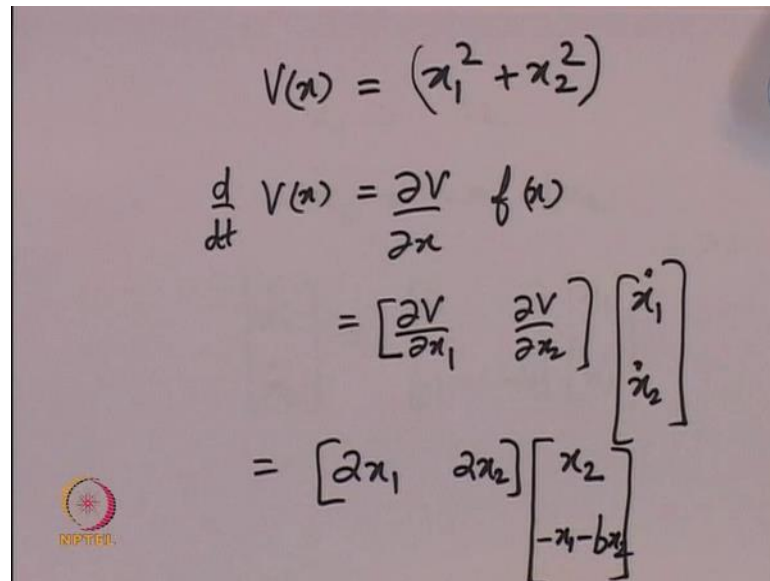 V(x) = (x₁² + x₂²)
d/dt V(x) = ∂V/∂x f(x)
= [∂V/∂x₁ ∂V/∂x₂] [ẋ₁ ẋ₂]
= [2x₁ 2x₂] [x₂ -x₁-bx₂]
NPTEL